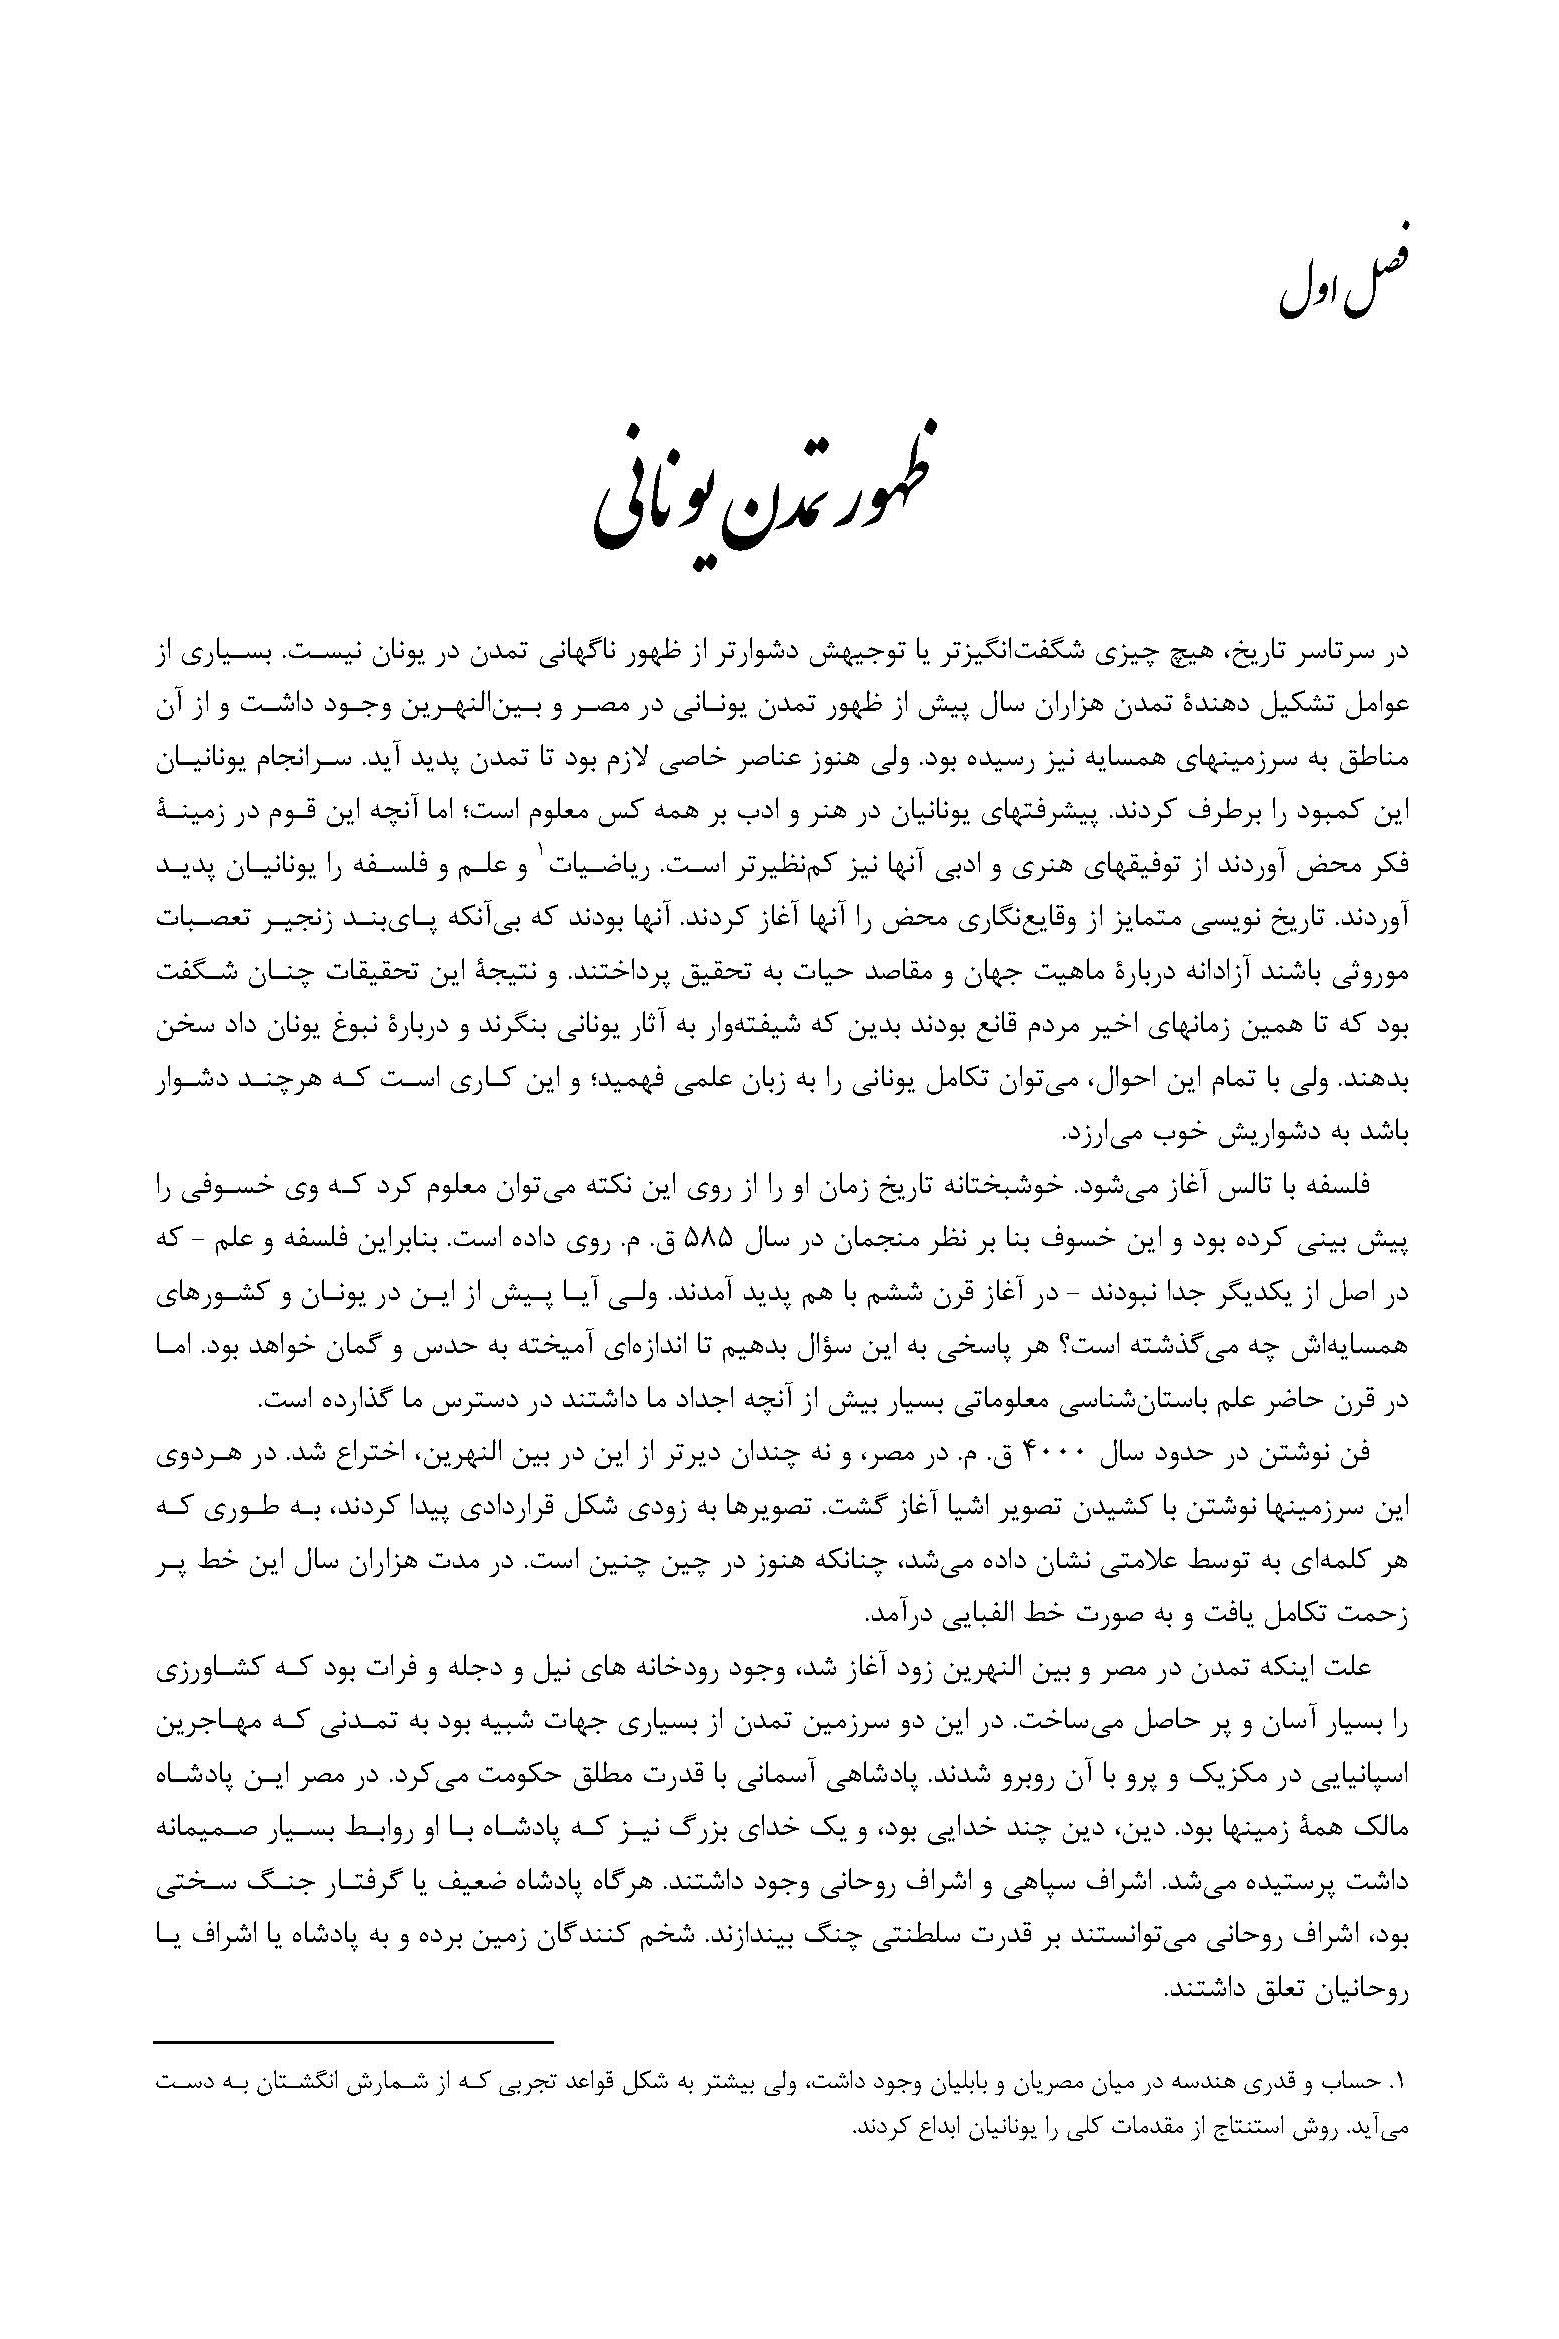 فصل اول
ظهور تمدن یونانی
در سرتاسر تاریخ، هیچ چیزی شگفت‌انگیزتر یا توجیهش دشوارتر از ظهور ناگهانی تمدن در یونان نیست. بسیاری از
عوامل تشکیل دهندهٔ تمدن هزاران سال پیش از ظهور تمدن یونانی در مصر و بین‌النهرین وجود داشت و از آن
مناطق به سرزمینهای همسایه نیز رسیده بود. ولی هنوز عناصر خاصی لازم بود تا تمدن پدید آید. سرانجام یونانیان
این کمبود را برطرف کردند. پیشرفتهای یونانیان در هنر و ادب بر همه کس معلوم است؛ اما آنچه این قوم در زمینهٔ
فکر محض آوردند از توفیقهای هنری و ادبی آنها نیز کم‌نظیرتر است. ریاضیات۱ و علم و فلسفه را یونانیان پدید
آوردند. تاریخ نویسی متمایز از وقایع‌نگاری محض را آنها آغاز کردند. آنها بودند که بی‌آنکه پای‌بند زنجیر تعصبات
موروثی باشند آزادانه دربارهٔ ماهیت جهان و مقاصد حیات به تحقیق پرداختند. و نتیجهٔ این تحقیقات چنان شگفت
بود که تا همین زمانهای اخیر مردم قانع بودند بدین که شیفته‌وار به آثار یونانی بنگرند و دربارهٔ نبوغ یونان داد سخن
بدهند. ولی با تمام این احوال، می‌توان تکامل یونانی را به زبان علمی فهمید؛ و این کاری است که هرچند دشوار
باشد به دشواریش خوب می‌ارزد.
فلسفه با تالس آغاز می‌شود. خوشبختانه تاریخ زمان او را از روی این نکته می‌توان معلوم کرد که وی خسوفی را
پیش بینی کرده بود و این خسوف بنا بر نظر منجمان در سال ۵۸۵ ق. م. روی داده است. بنابراین فلسفه و علم – که
در اصل از یکدیگر جدا نبودند – در آغاز قرن ششم با هم پدید آمدند. ولی آیا پیش از این در یونان و کشورهای
همسایه‌اش چه می‌گذشته است؟ هر پاسخی به این سؤال بدهیم تا اندازه‌ای آمیخته به حدس و گمان خواهد بود. اما
در قرن حاضر علم باستان‌شناسی معلوماتی بسیار بیش از آنچه اجداد ما داشتند در دسترس ما گذارده است.
فن نوشتن در حدود سال ۴۰۰۰ ق. م. در مصر، و نه چندان دیرتر از این در بین النهرین، اختراع شد. در هردوی
این سرزمینها نوشتن با کشیدن تصویر اشیا آغاز گشت. تصویرها به زودی شکل قراردادی پیدا کردند، به طوری که
هر کلمه‌ای به توسط علامتی نشان داده می‌شد، چنانکه هنوز در چین چنین است. در مدت هزاران سال این خط پر
زحمت تکامل یافت و به صورت خط الفبایی درآمد.
علت اینکه تمدن در مصر و بین النهرین زود آغاز شد، وجود رودخانه های نیل و دجله و فرات بود که کشاورزی
را بسیار آسان و پر حاصل می‌ساخت. در این دو سرزمین تمدن از بسیاری جهات شبیه بود به تمدنی که مهاجرین
اسپانیایی در مکزیک و پرو با آن روبرو شدند. پادشاهی آسمانی با قدرت مطلق حکومت می‌کرد. در مصر این پادشاه
مالک همهٔ زمینها بود. دین، دین چند خدایی بود، و یک خدای بزرگ نیز که پادشاه با او روابط بسیار صمیمانه
داشت پرستیده می‌شد. اشراف سپاهی و اشراف روحانی وجود داشتند. هرگاه پادشاه ضعیف یا گرفتار جنگ سختی
بود، اشراف روحانی می‌توانستند بر قدرت سلطنتی چنگ بیندازند. شخم کنندگان زمین برده و به پادشاه یا اشراف یا
روحانیان تعلق داشتند.
۱. حساب و قدری هندسه در میان مصریان و بابلیان وجود داشت، ولی بیشتر به شکل قواعد تجربی که از شمارش انگشتان به دست
می‌آید. روش استنتاج از مقدمات کلی را یونانیان ابداع کردند.